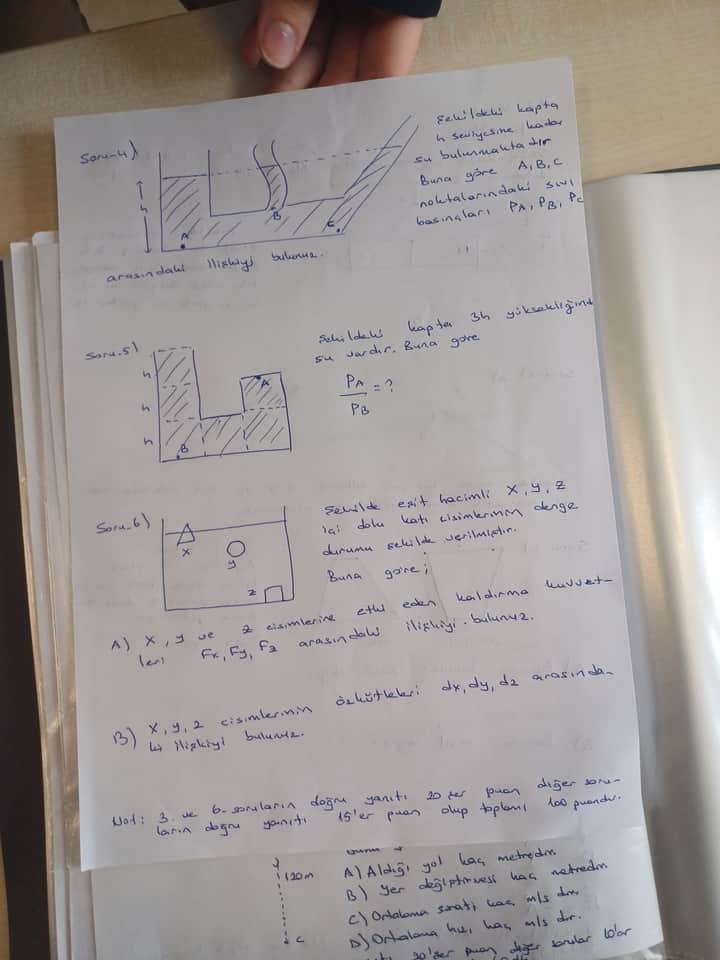 Soru-4)
Şekildeki kapta
h seviyesine kadar
su bulunmaktadır
Buna göre A, B, C
noktalarındaki sıvı
basınçları PA, PB, PC
arasındaki ilişkiyi bulunuz.
h
A
B
C
Soru-5)
Şekildeki kapta 3h yüksekliğinde
su vardır. Buna göre
PA
PB
= ?
h
h
h
A
B
Soru-6)
Şekilde eşit hacimli X, Y, Z
içi dolu katı cisimlerinin denge
durumu şekilde verilmiştir.
Buna göre;
x
y
z
A) X, Y ve Z cisimlerine etki eden kaldırma kuvvet-
leri Fx, Fy, Fz arasındaki ilişkiyi bulunuz.
B) X, Y, Z cisimlerinin özkütleleri dx, dy, dz arasında-
ki ilişkiyi bulunuz.
Not: 3. ve 6. soruların doğru yanıtı 20'şer puan diğer soru-
ların doğru yanıtı 15'er puan olup toplamı 100 puandır.
120m
C
A) Aldığı yol kaç metredir
B) Yer değiştirmesi kaç metredir
C) Ortalama sürati kaç m/s dir.
D) Ortalama hızı kaç m/s dir.
puan diğer sorular 10'ar